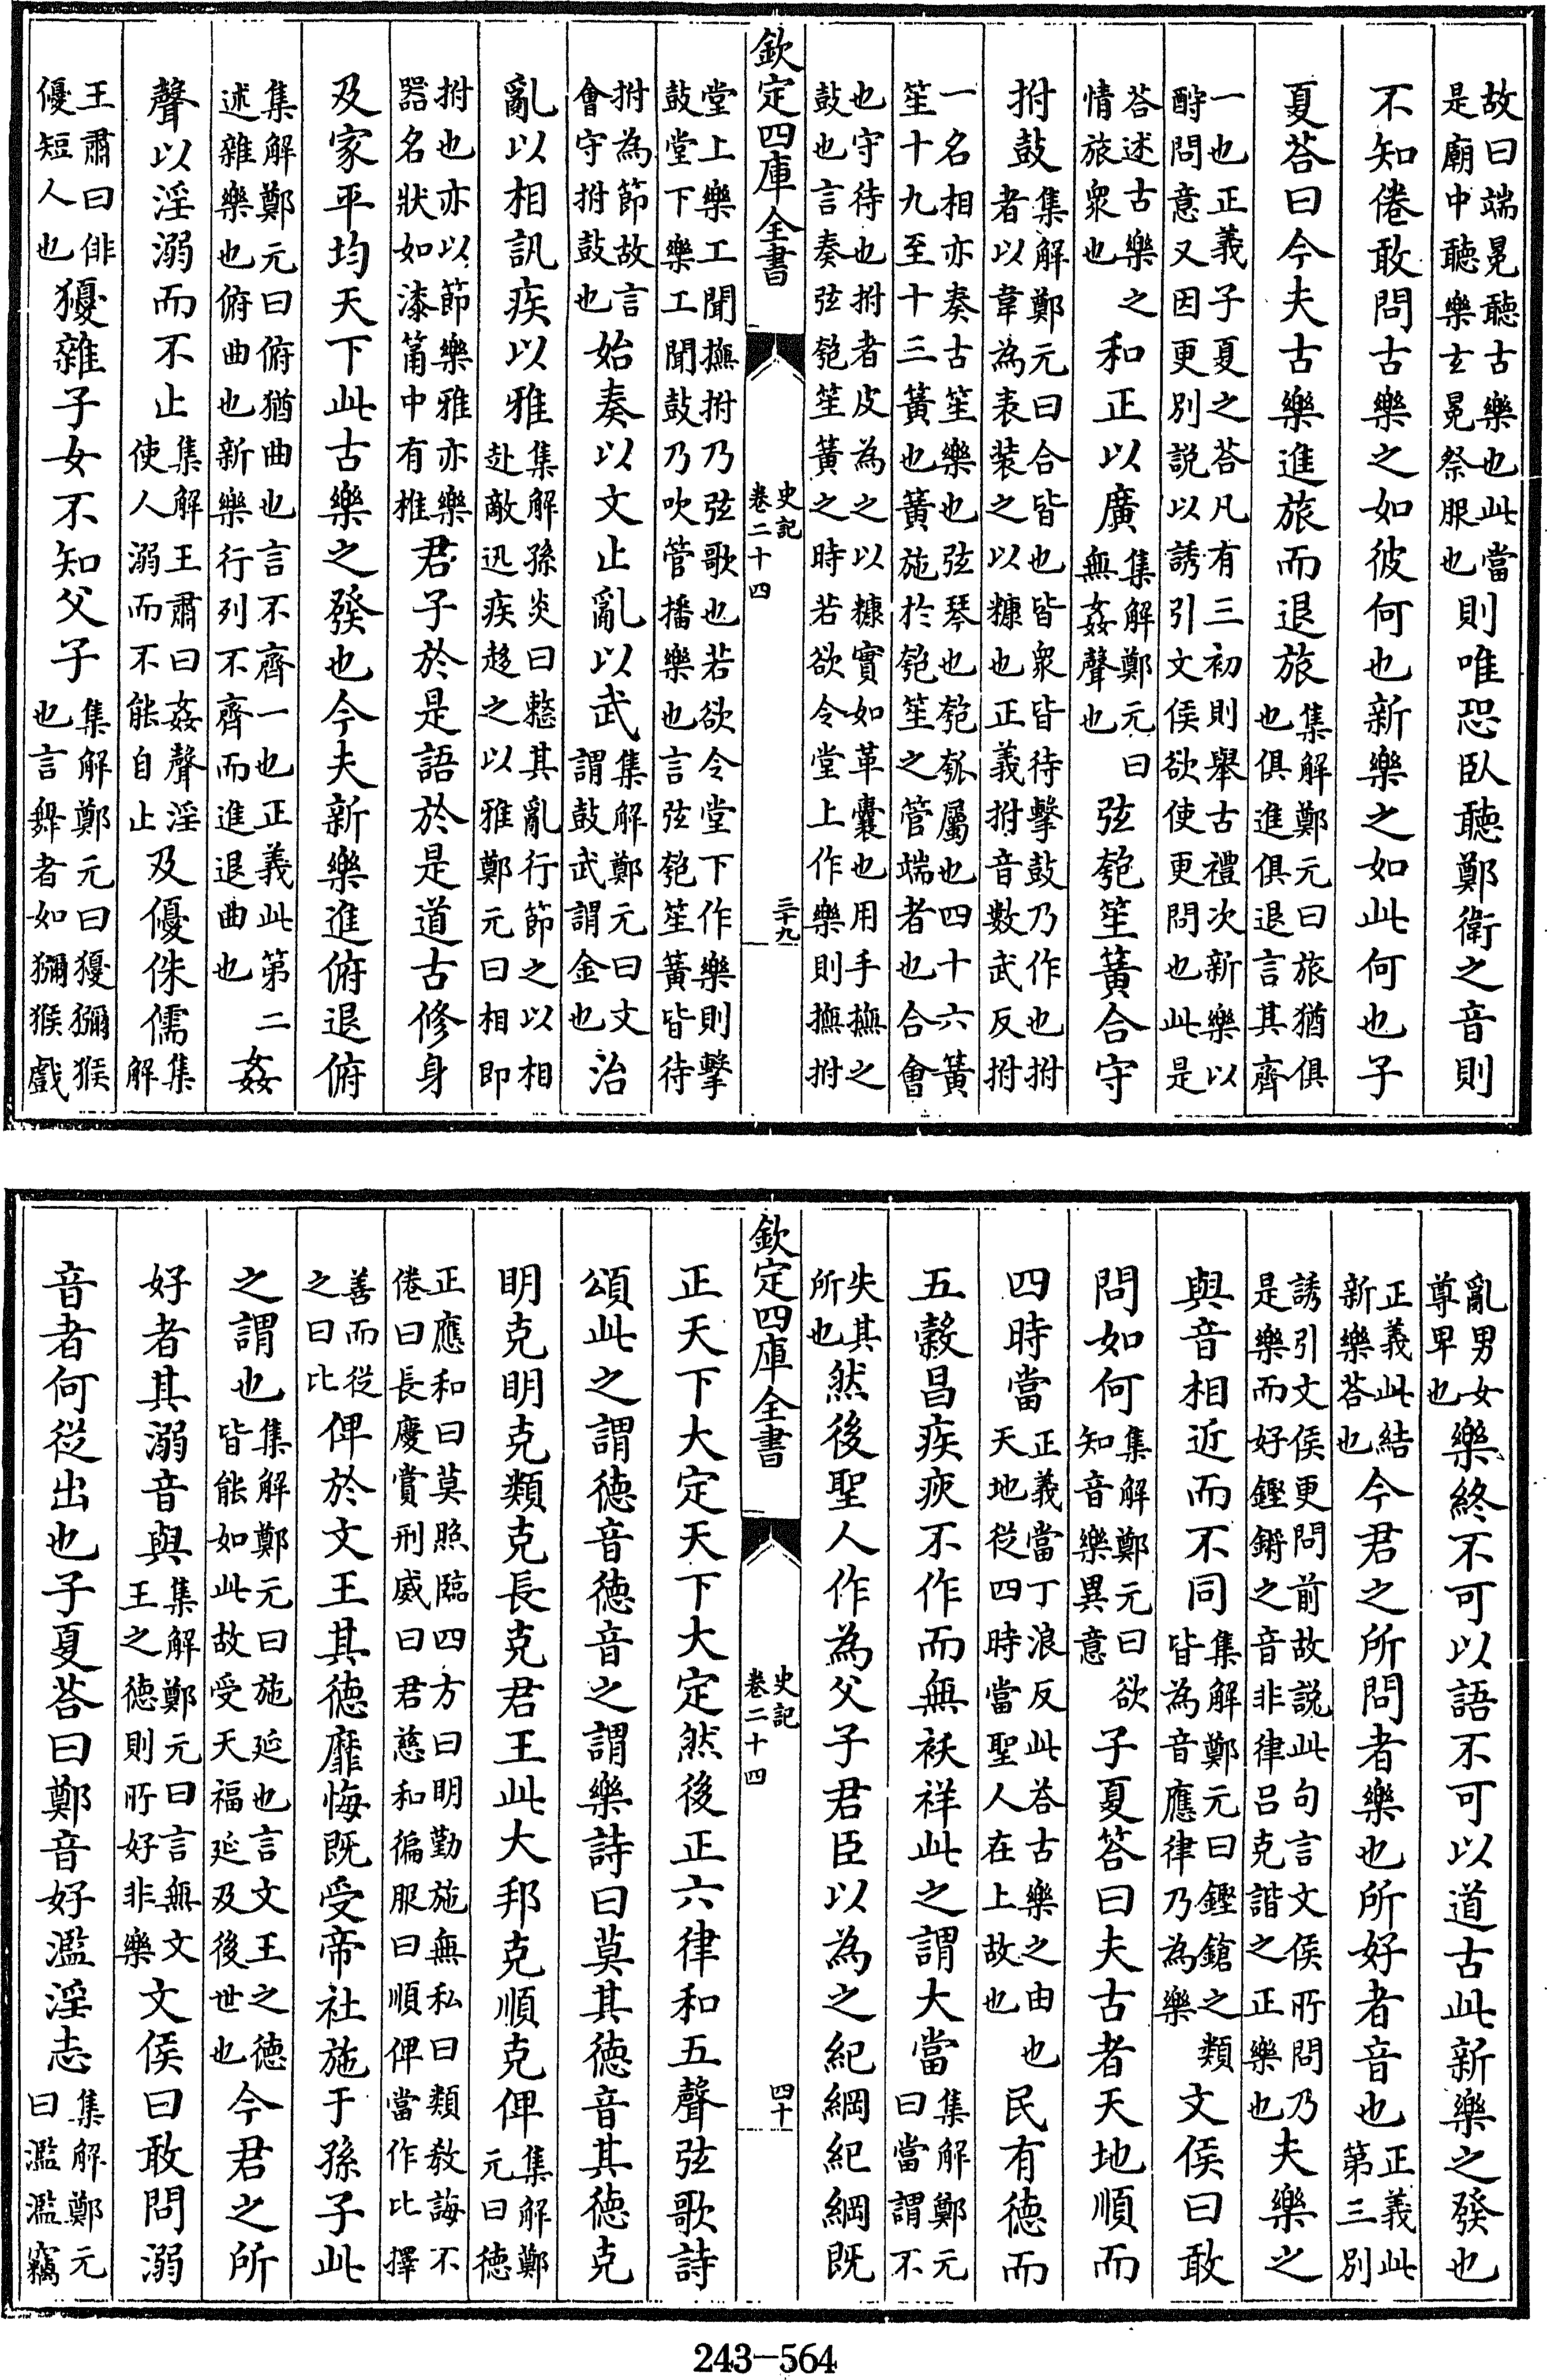 故曰端冕聽古樂也此當是廟中聽樂玄冕祭服也則唯恐臥聽鄭衛之音則
不知倦敢問古樂之如彼何也新樂之如此何也子
夏荅曰今夫古樂進旅而退旅集解鄭元曰旅猶俱也俱進俱退言其齊
一也正義子夏之荅凡有三初則舉古禮次新樂以酧問意又因更别説以誘引文侯欲使更問也此是
荅述古樂之情旅衆也和正以廣集解鄭元曰無姦聲也弦匏笙簧合守
拊鼓集解鄭元曰合皆也皆衆皆待擊鼓乃作也拊者以韋為表装之以糠也正義拊音敷武反拊
一名相亦奏古笙樂也弦琴也匏瓠屬也四十六簧笙十九至十三簧也簧施於匏笙之管端者也合會
也守待也拊者皮為之以糠實如革囊也用手撫之鼓也言奏弦匏笙簧之時若欲令堂上作樂則撫拊
欽定四庫全書 史記卷二十四 三十九
堂上樂工聞撫拊乃弦歌也若欲令堂下作樂則擊鼓堂下樂工聞鼓乃吹管播樂也言弦匏笙簧皆待
拊為節故言會守拊鼓也始奏以文止亂以武集解鄭元曰文謂鼓武謂金也治
亂以相訊疾以雅集解孫炎曰整其亂行節之以相赴敵迅疾趍之以雅鄭元曰相即
拊也亦以節樂雅亦樂器名狀如漆筩中有椎君子於是語於是道古修身
及家平均天下此古樂之發也今夫新樂進俯退俯
集解鄭元曰俯猶曲也言不齊一也正義此第二述雜樂也俯曲也新樂行列不齊而進退曲也姦
聲以淫溺而不止集解王肅曰姦聲淫使人溺而不能自止及優侏儒集解
王肅曰俳優短人也獶雜子女不知父子集解鄭元曰獶獼猴也言舞者如獼猴戲
亂男女尊卑也樂終不可以語不可以道古此新樂之發也
正義此結新樂荅也今君之所問者樂也所好者音也正義此第三別
誘引文侯更問前故説此句言文侯所問乃是樂而好鏗鏘之音非律呂克諧之正樂也夫樂之
與音相近而不同集解鄭元曰鏗鎗之類皆為音應律乃為樂文侯曰敢
問如何集解鄭元曰欲知音樂異意子夏荅曰夫古者天地順而
四時當正義當丁浪反此荅古樂之由也天地從四時當聖人在上故也民有德而
五穀昌疾疢不作而無袄祥此之謂大當集解鄭元曰當謂不
失其所也然後聖人作為父子君臣以為之紀綱紀綱既
欽定四庫全書 史記卷二十四 四十
正天下大定天下大定然後正六律和五聲弦歌詩
頌此之謂德音德音之謂樂詩曰莫其德音其德克
明克明克類克長克君王此大邦克順克俾集解鄭元曰德
正應和曰莫照臨四方曰明勤施無私曰類教誨不倦曰長慶賞刑威曰君慈和徧服曰順俾當作比擇
善而從之曰比俾於文王其德靡悔既受帝社施于孫子此
之謂也集解鄭元曰施延也言文王之德皆能如此故受天福延及後世也今君之所
好者其溺音與集解鄭元曰言無文王之德則所好非樂文侯曰敢問溺
音者何從出也子夏荅曰鄭音好濫淫志集解鄭元曰濫濫竊
243-564